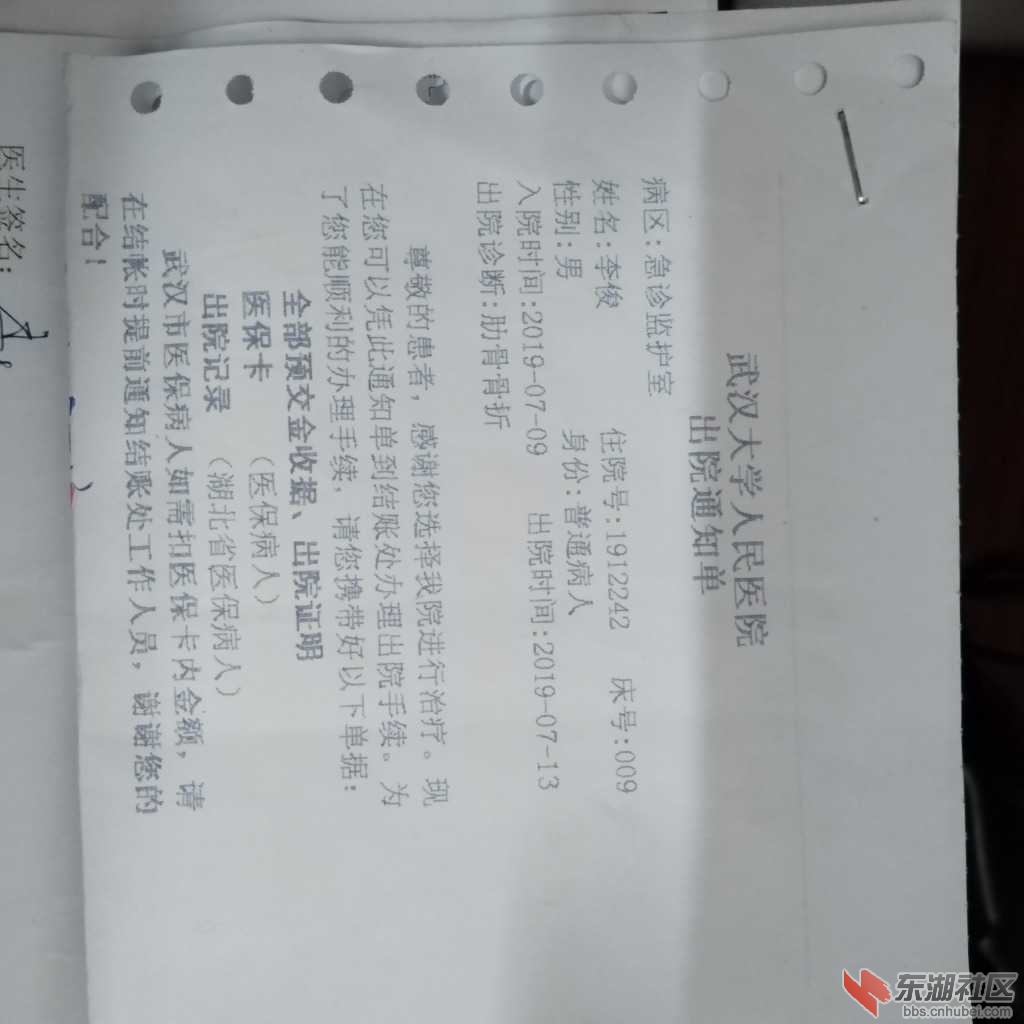 武汉大学人民医院
出院通知单
病区:急诊监护室
姓名:李俊 住院号:1912242 床号:009
性别:男 身份:普通病人
入院时间:2019-07-09 出院时间:2019-07-13
出院诊断:肋骨骨折
尊敬的患者，感谢您选择我院进行治疗。现
在您可以凭此通知单到结账处办理出院手续。为
了您能顺利的办理手续，请您携带好以下单据:
全部预交金收据、出院证明
医保卡 （医保病人）
出院记录 （湖北省医保病人）
武汉市医保病人如需扣医保卡内金额，请
在结帐时提前通知结账处工作人员，谢谢您的
配合！
医生签名:
东湖社区
bbs.cnhubei.com